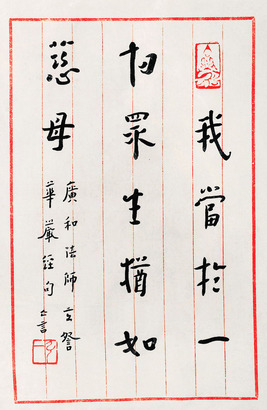 我當於一
切眾生猶如
慈母
廣和法師玄詧
華嚴經句亡言